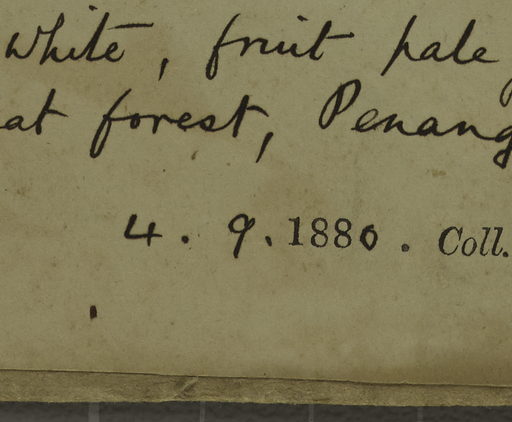 white, fruit pale
at forest, Penang
4. 9. 1880. Coll.